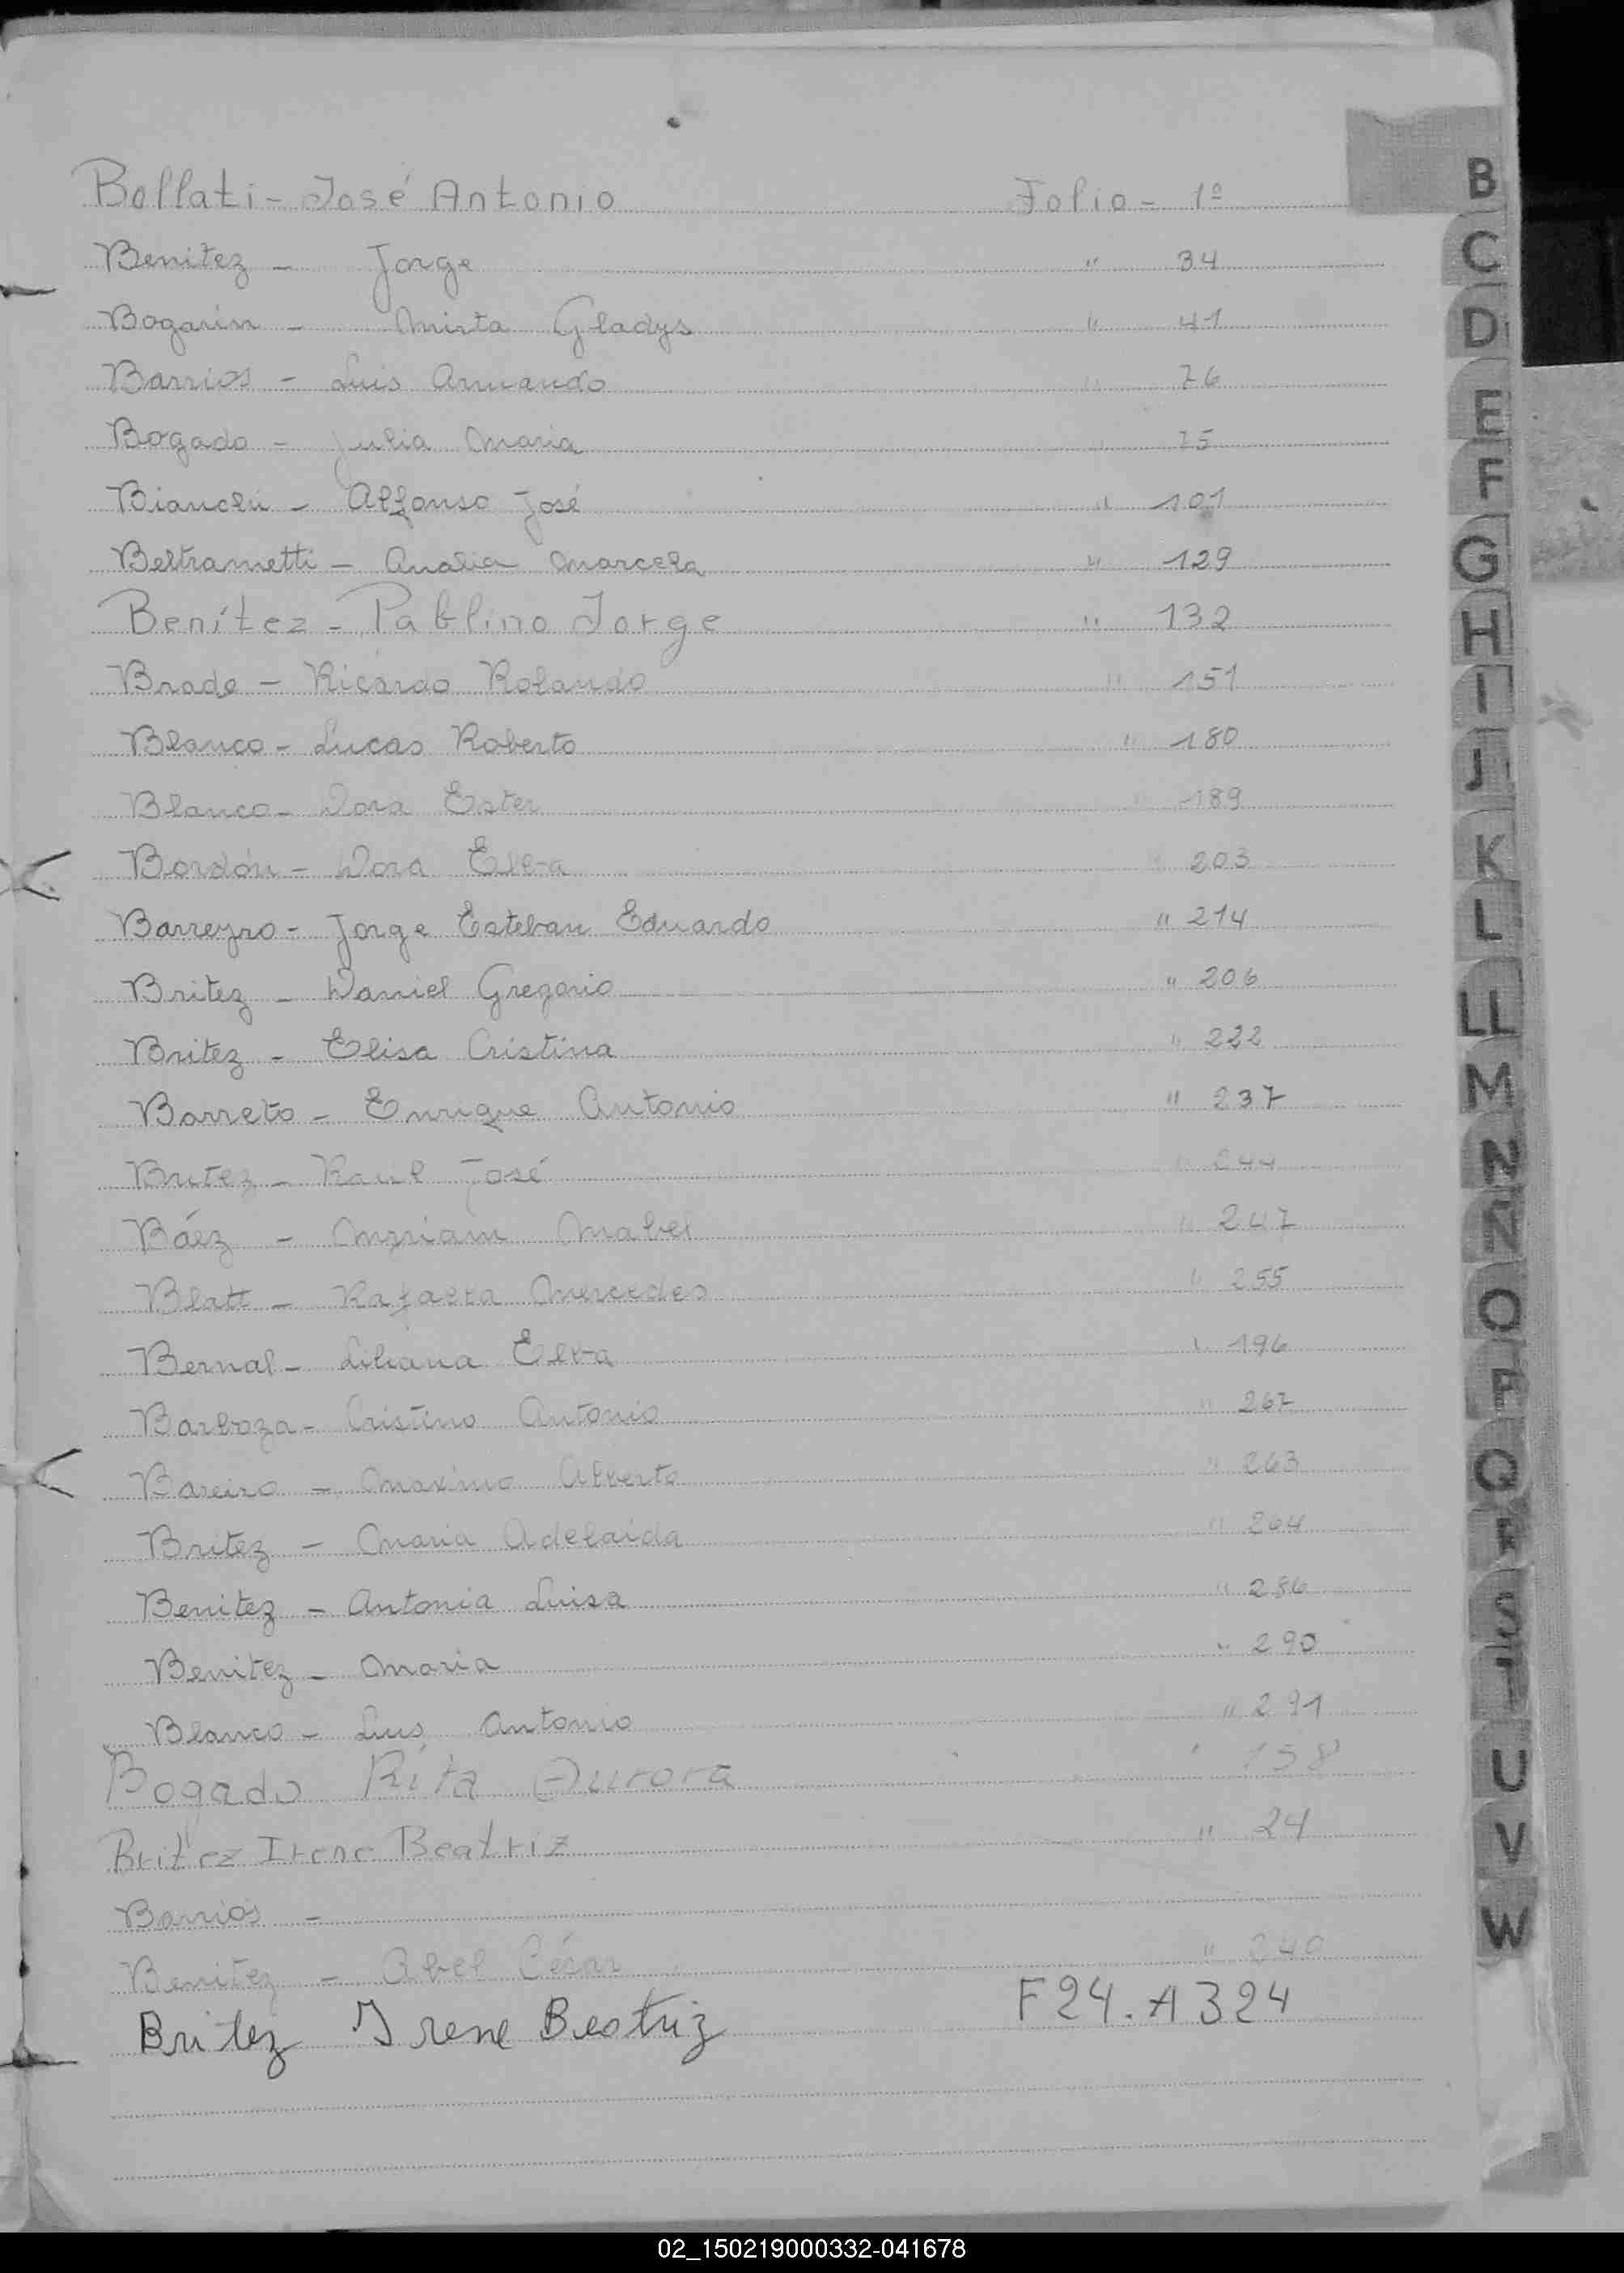 Bollati - José Antonio Folio - 1º
Benitez - Jorge " 34
Bogarin - Mirta Gladys " 41
Barrios - Luis Armando " 76
Bogado - Julia Maria " 75
Bianchi - Alfonso José " 101
Beltrametti - Analia Marcela " 129
Benítez - Pablino Jorge " 132
Brade - Ricardo Rolando " 151
Blanco - Lucas Roberto " 180
Blanco - Dora Ester 189
Bordón - Dora Elba " 203
Barreyro - Jorge Esteban Eduardo " 214
Britez - Daniel Gregorio " 206
Britez - Elisa Cristina " 222
Barreto - Enrique Antonio " 237
Britez - Raul José " 244
Báez - Myriam Mabel " 247
Blatt - Rafaela Mercedes " 255
Bernal - Liliana Elba " 196
Barboza - Cristino Antonio " 267
Bareiro - Maximo Alberto " 263
Britez - Maria Adelaida " 264
Benitez - Antonia Luisa " 286
Benitez - Maria " 290
Blanco - Luis Antonio " 291
Bogado Rita Aurora " 158
Britez Irene Beatriz " 24
Barrios -
Benitez - Abel César " 240
Britez Irene Beatriz F24. A324
B
C
D
E
F
G
H
I
J
K
L
LL
M
N
Ñ
O
P
Q
R
S
T
U
V
W
02_150219000332-041678